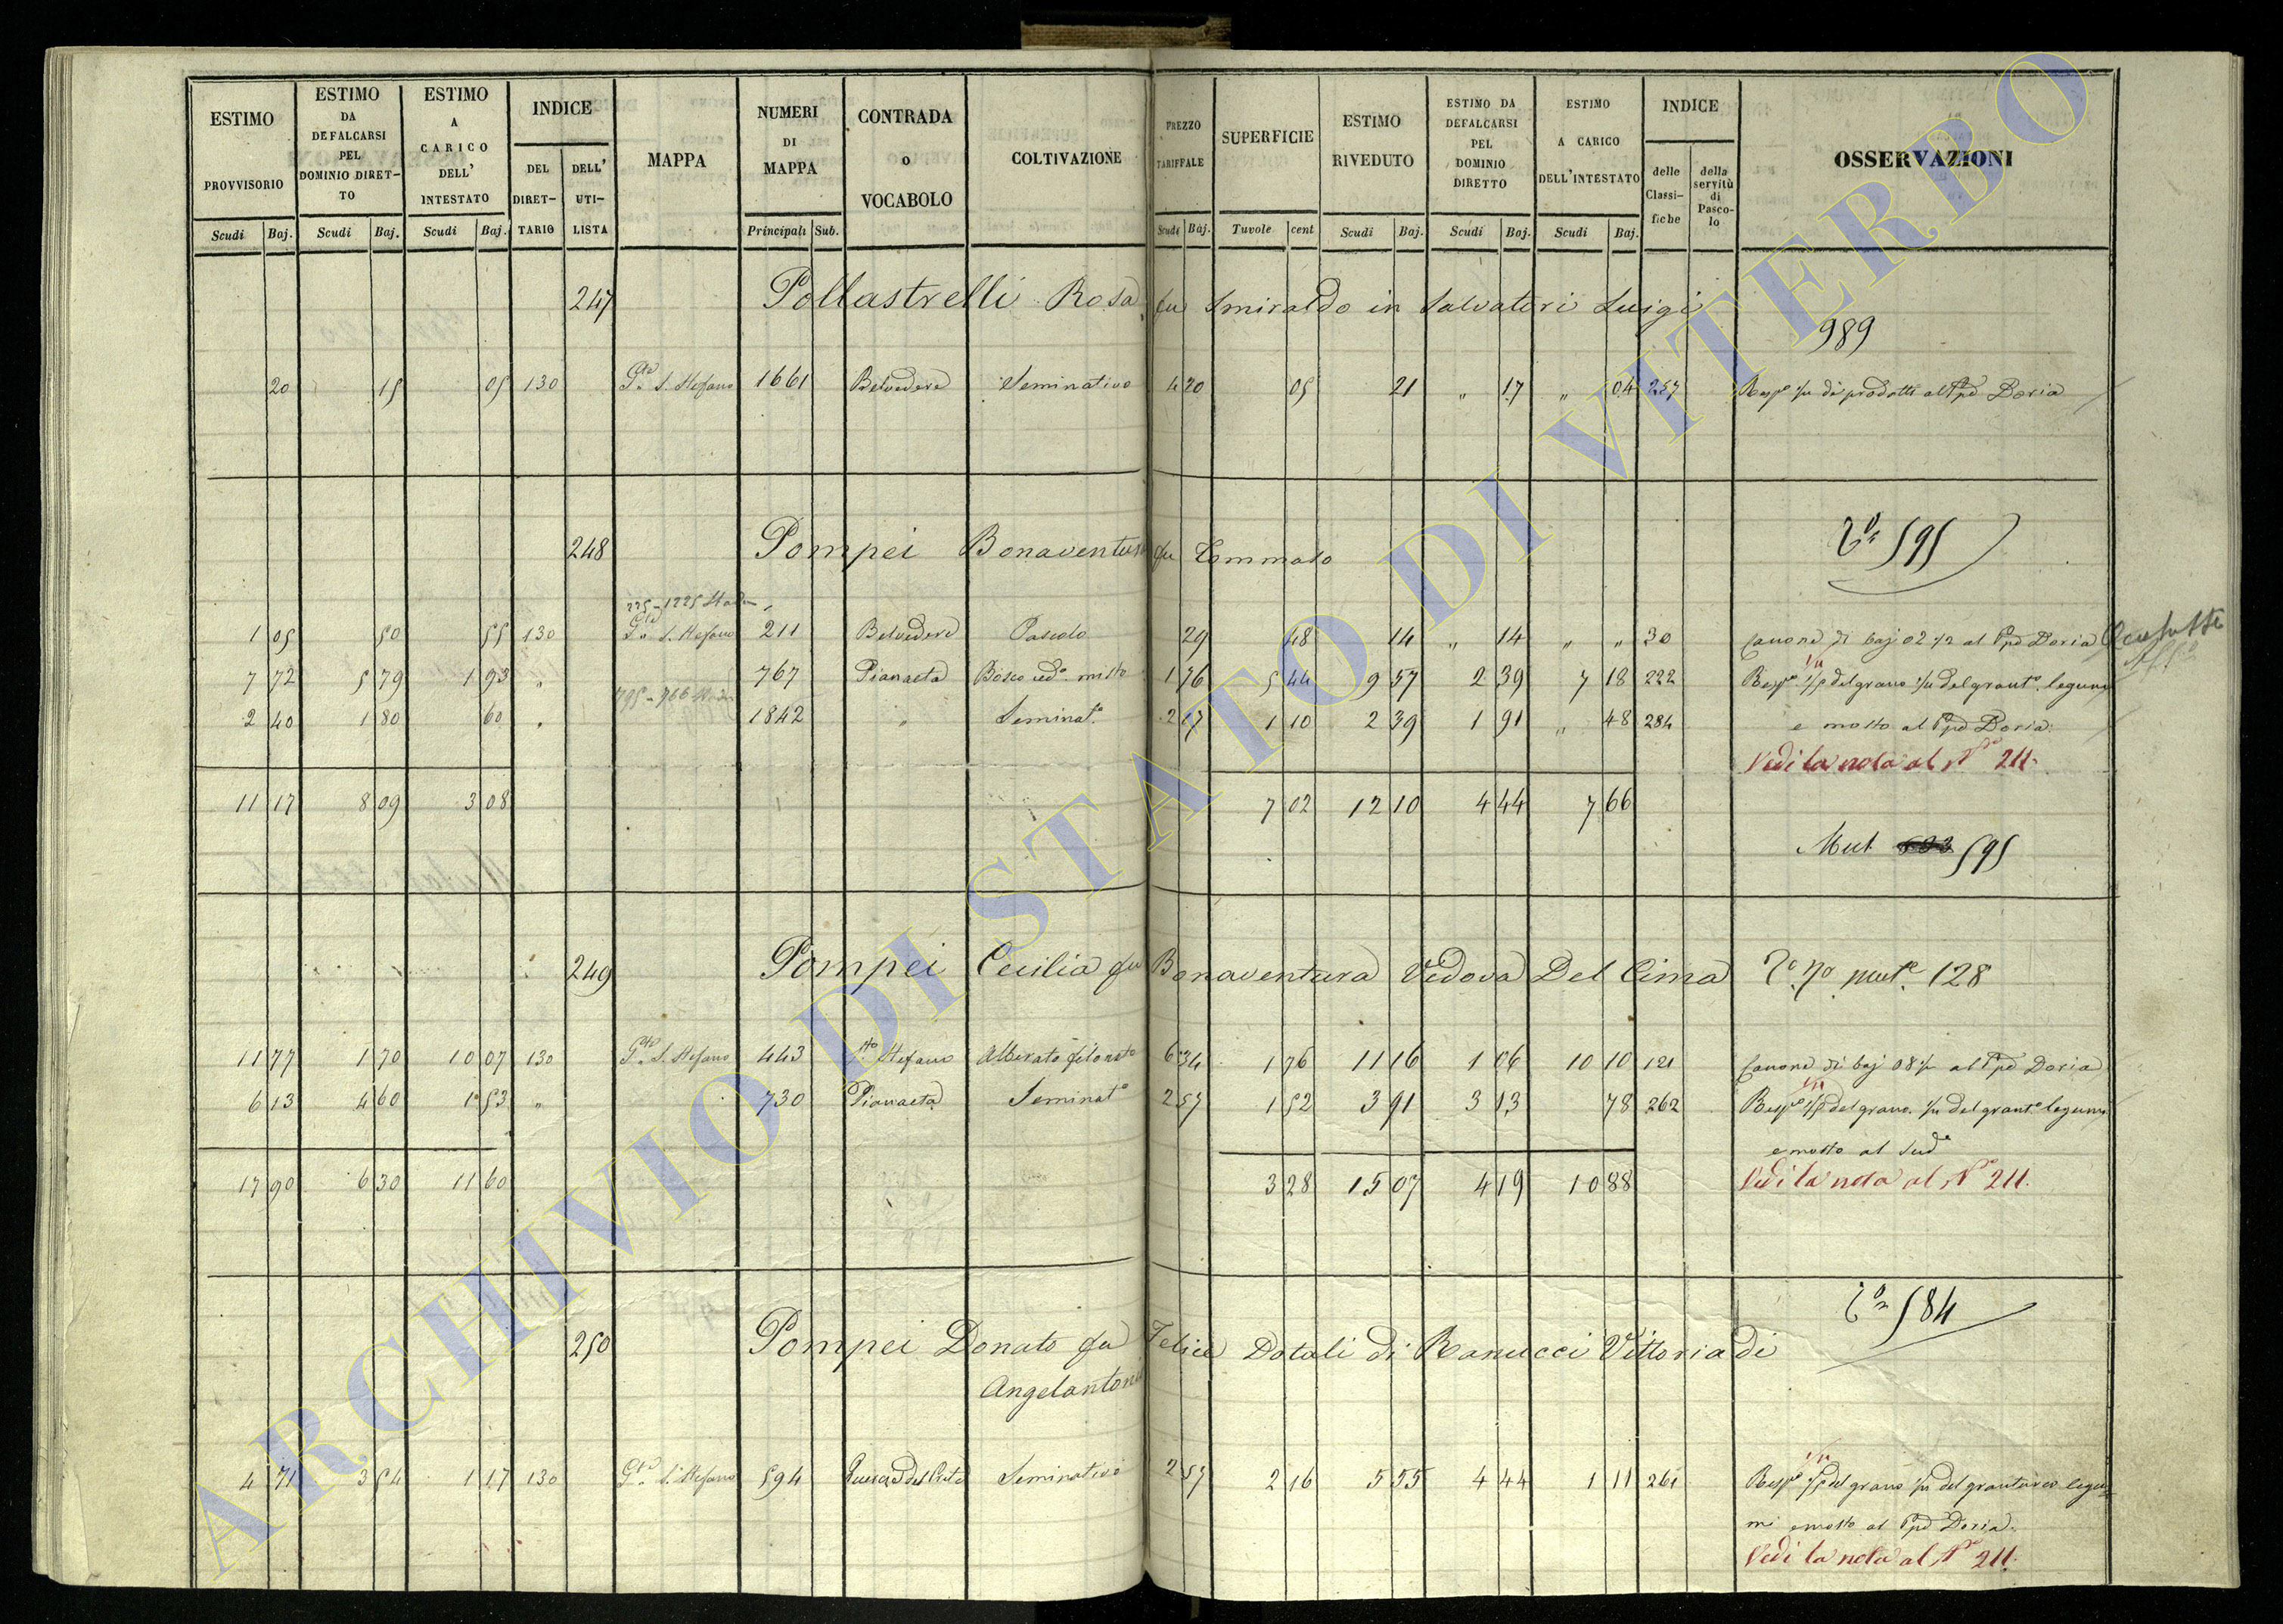 ESTIMO PROVVISORIO | ESTIMO DA DEFALCARSI PEL DOMINIO DIRETTO | ESTIMO A CARICO DELL' INTESTATO | INDICE | MAPPA | NUMERI DI MAPPA | CONTRADA O VOCABOLO | COLTIVAZIONE | PREZZO TARIFFALE | SUPERFICIE | ESTIMO RIVEDUTO | ESTIMO DA DEFALCARSI PEL DOMINIO DIRETTO | ESTIMO A CARICO DELL'INTESTATO | INDICE | OSSERVAZIONI
DEL DIRETTARIO | DELL' UTILISTA | delle Classifiche | della servitù di Pascolo
Scudi | Baj. | Scudi | Baj. | Scudi | Baj. | Principali | Sub. | Scudi | Baj. | Tavole | cent | Scudi | Baj. | Scudi | Baj. | Scudi | Baj.
247 Pollastrelli Rosa fu Smiraldo in Salvatori Luigi
989
20 | 15 | 05 | 130 | S. Stefano | 1661 | Belvedere | Seminativo | 4 20 | 05 | 21 | " 17 | " 04 | 257 | di prodotti al Doria
248 Pompei Bonaventura fu Tommaso
595
1 05 | 50 | 55 | 130 | S. Stefano | 211 | Belvedere | Pascolo | 29 | 48 | 14 | " 14 | " " | 30 | Canone di baj 02 1/2 al Ppe Doria
7 72 | 5 79 | 1 93 | " | 767 | Pianaeta | Bosco ced. misto | 1 76 | 5 44 | 9 57 | 2 39 | 7 18 | 222 | del grano del grant. legumi
2 40 | 1 80 | 60 | " | 1842 | " | Seminato | 2 17 | 1 10 | 2 39 | 1 91 | " 48 | 284 | e mosto al Ppe Doria
Vedi la nota al No 211.
11 17 | 8 09 | 3 08 | 7 02 | 12 10 | 4 44 | 7 66
Mut 595
249 Pompei Cecilia fu Bonaventura Vedova Del Cima
128
11 77 | 1 70 | 10 07 | 130 | S. Stefano | 443 | Sto Stefano | Alberato filonato | 6 34 | 1 76 | 11 16 | 1 06 | 10 10 | 121 | Canone di baj 08 1/2 al Ppe Doria
6 13 | 4 60 | 1 53 | " | 730 | Pianaeta | Seminato | 2 57 | 1 52 | 3 91 | 3 13 | 78 | 262 | del grano del grant. legumi
e mosto al Sudo
Vedi la nota al No 211.
17 90 | 6 30 | 11 60 | 3 28 | 15 07 | 4 19 | 10 88
584
250 Pompei Donato fu Felice Dotali di Ranucci Vittoria di
Angelantonio
4 71 | 3 54 | 1 17 | 130 | S. Stefano | 594 | Seminativo | 2 57 | 2 16 | 5 55 | 4 44 | 1 11 | 261 | del grano del granturco legu-
mi e mosto al Ppe Doria.
Vedi la nota al No 211.
ARCHIVIO DI STATO DI VITERBO